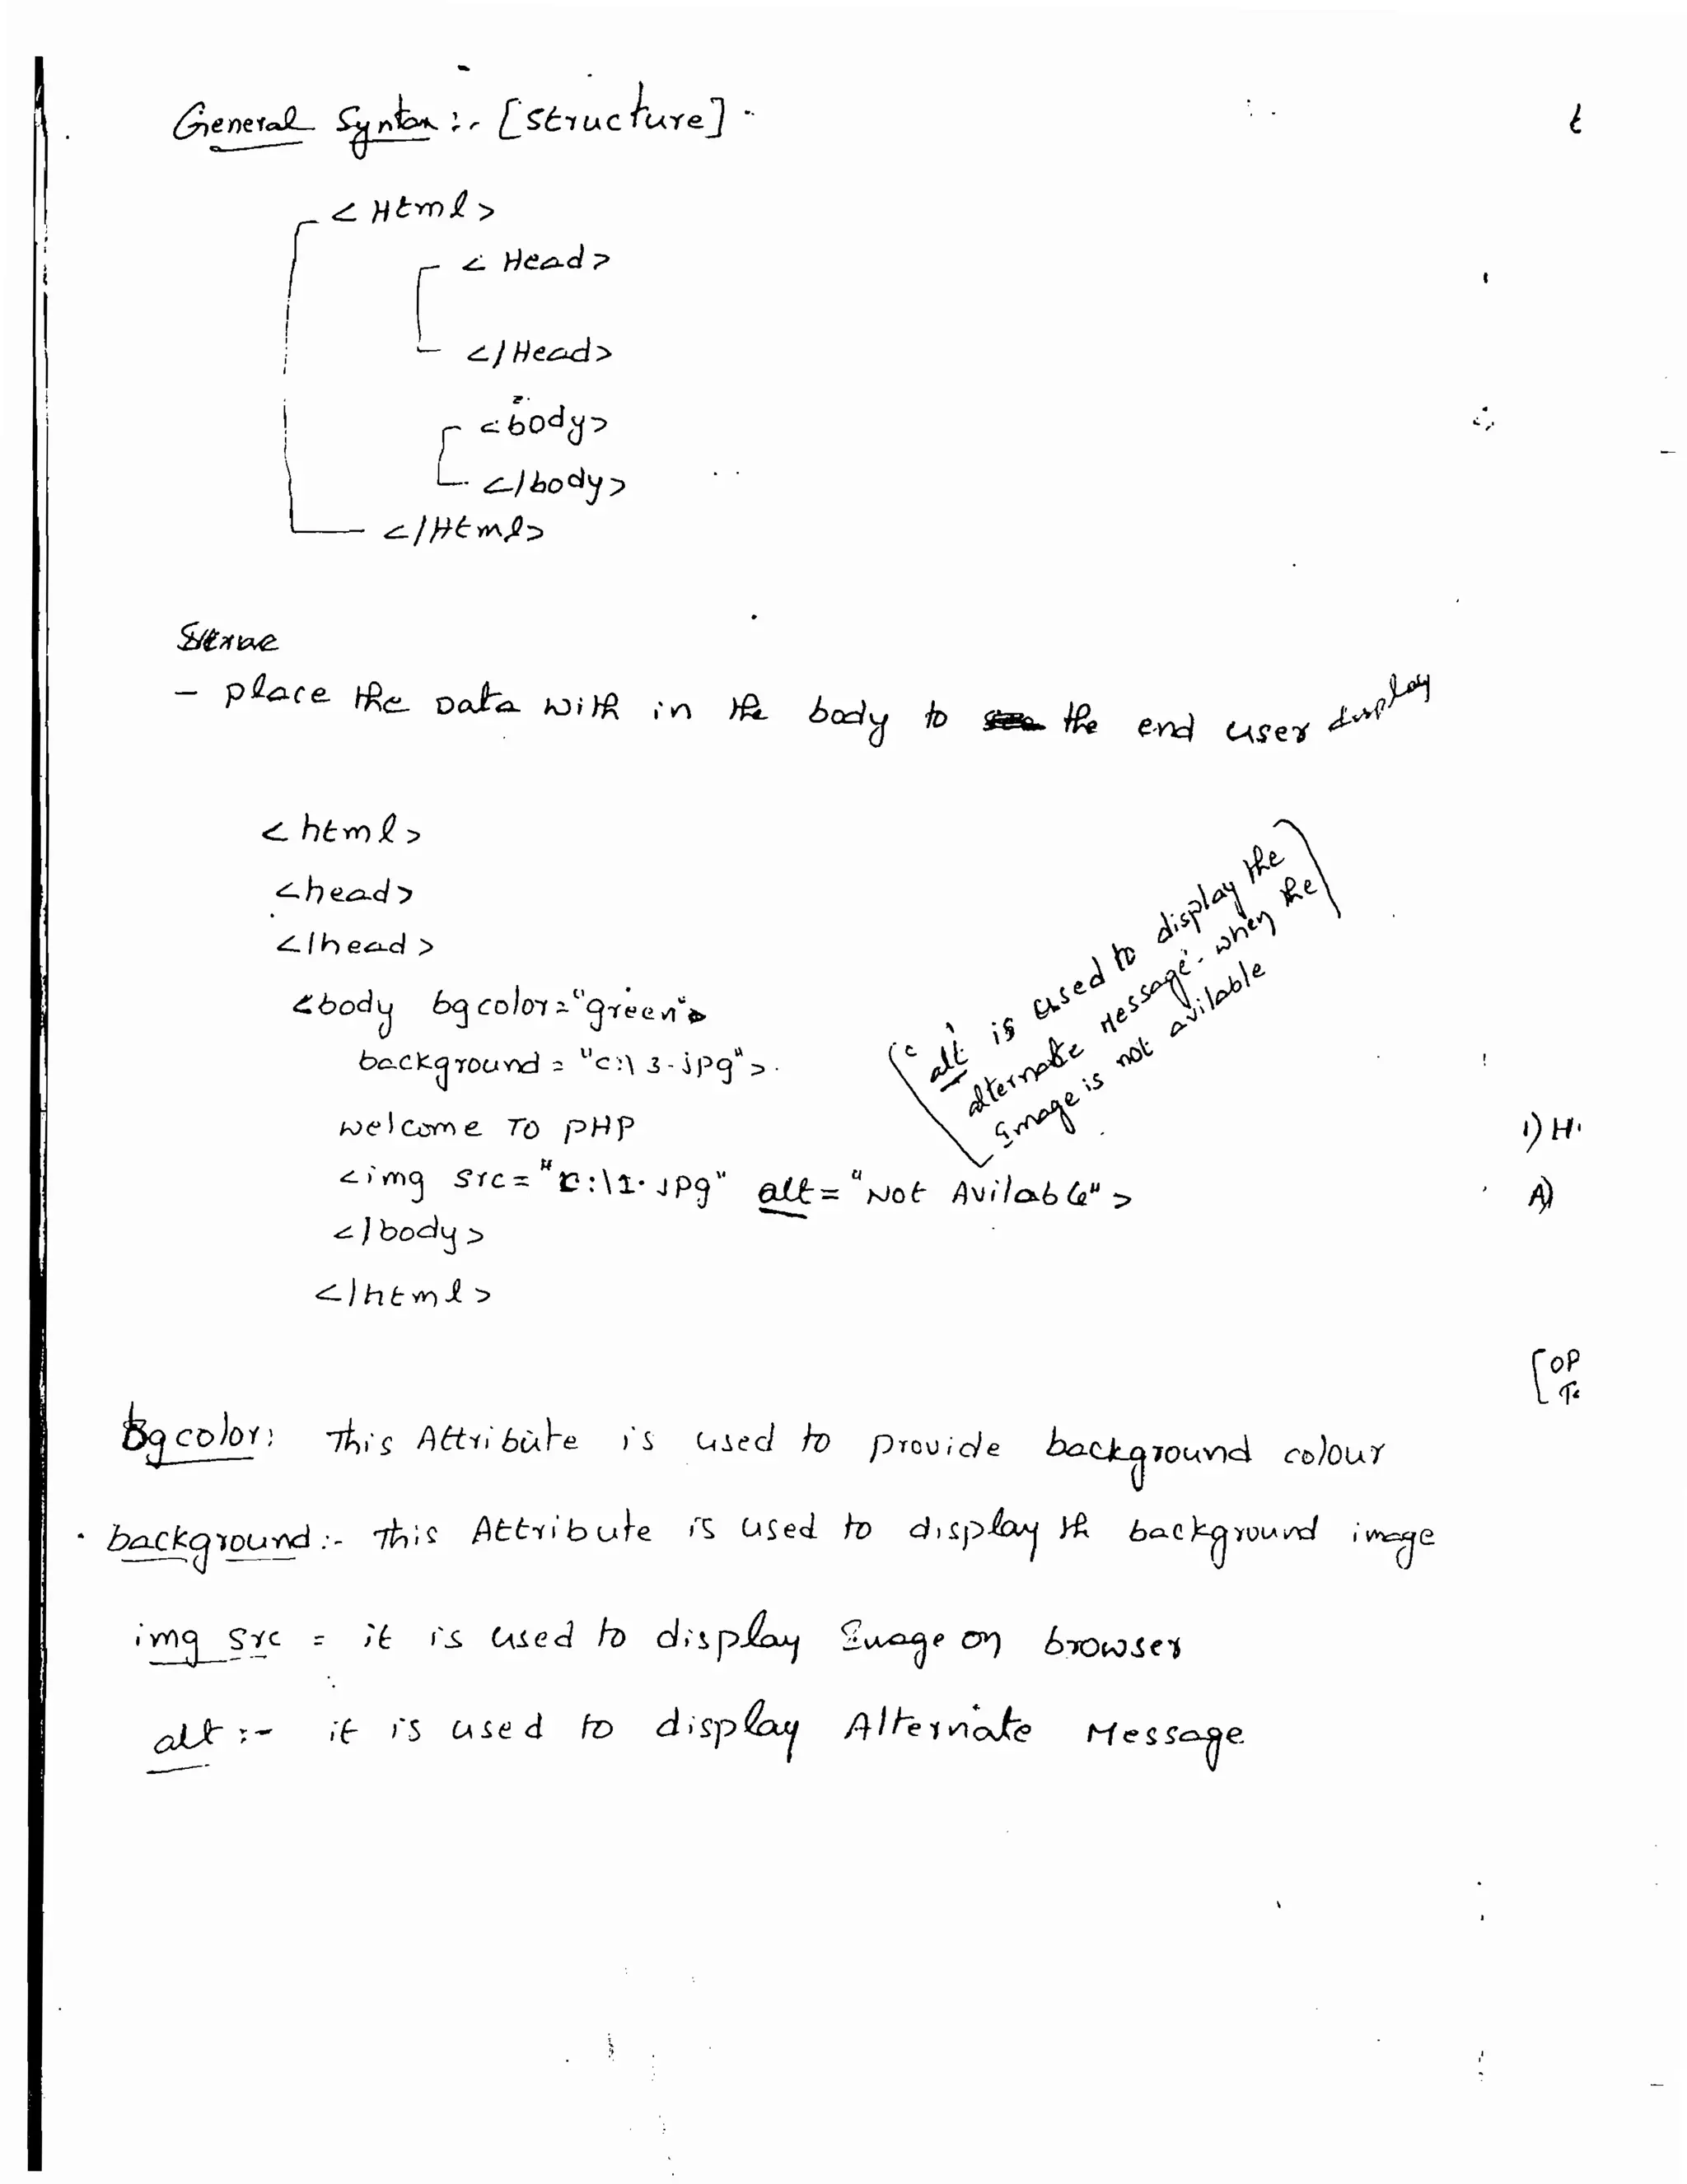 General Syntax :- [structure]
< Html >
< Head >
</Head>
<body>
</body>
</Html>
- place the Data with in the body to the end user display
< html >
<head>
</head >
<body bgcolor="green"
background = "c:\ 3.jpg">
welcome TO PHP
<img src="c:\1.jpg" alt="Not Avilable">
</body>
</html>
'alt' is used to display the
alternate Message when the
Image is not avilable
bgcolor: This Attribute is used to provide background colour
background :- This Attribute is used to display the background image
img src = it is used to display Image on browser
alt :- it is used to display Alternate Message
t
1) H
A)
[OP